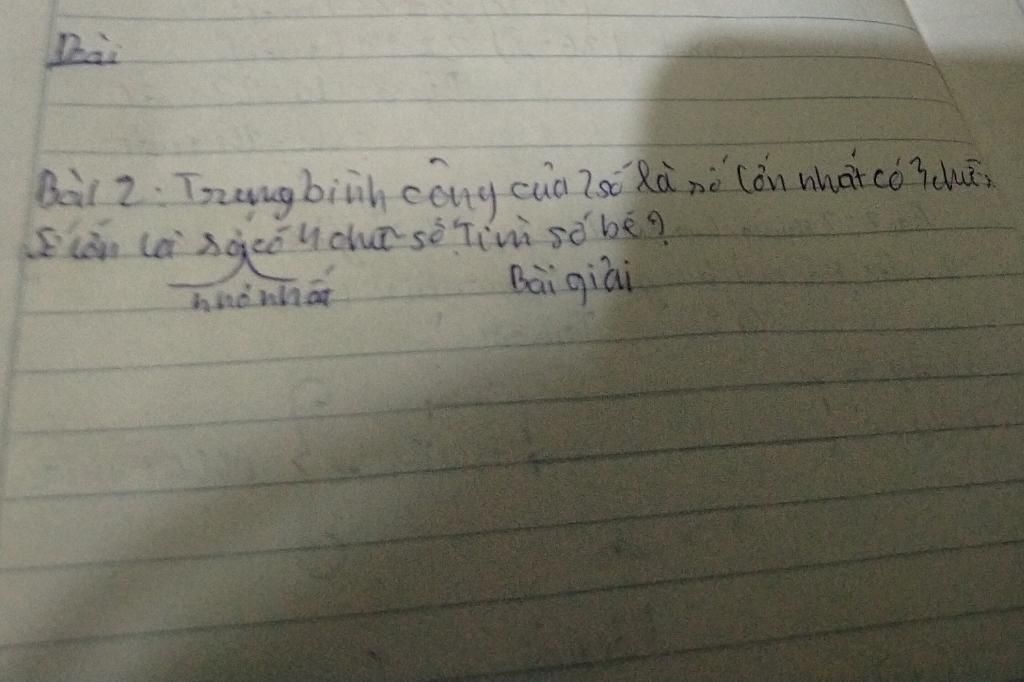 Bài
Bài 2: Trung bình cộng của 2 số là số lớn nhất có 3 chữ,
Số lớn là số có 4 chữ số. Tìm số bé?
nhỏ nhất
Bài giải